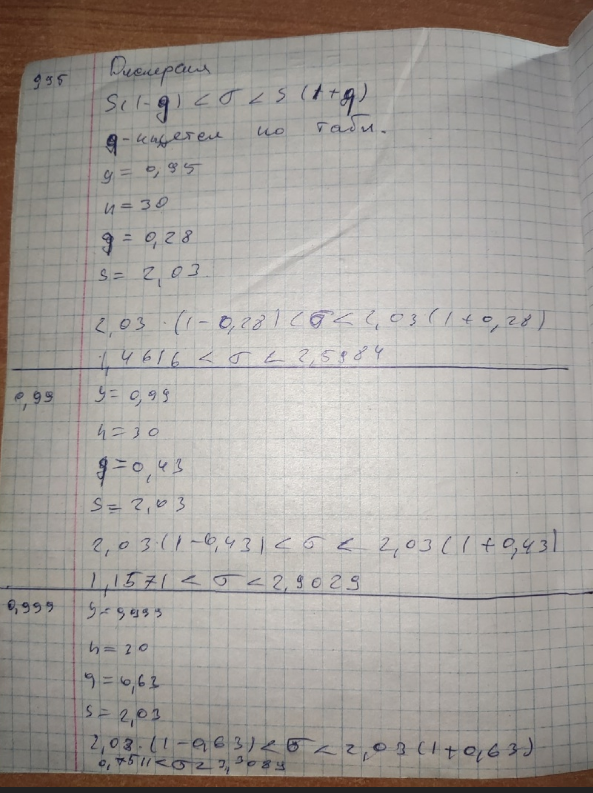 0,95 Дисперсия
S(1-q) < σ < S(1+q)
q-ищется по табл.
y = 0,95
n = 30
q = 0,28
s = 2,03
2,03 · (1-0,28) < σ < 2,03(1+0,28)
1,4616 < σ < 2,5984
0,99 y = 0,99
n = 30
q = 0,43
s = 2,03
2,03·(1-0,43) < σ < 2,03(1+0,43)
1,1571 < σ < 2,9029
0,999 y = 0,999
n = 30
q = 0,63
s = 2,03
2,03·(1-0,63) < σ < 2,03(1+0,63)
0,7511 < σ < 3,3089